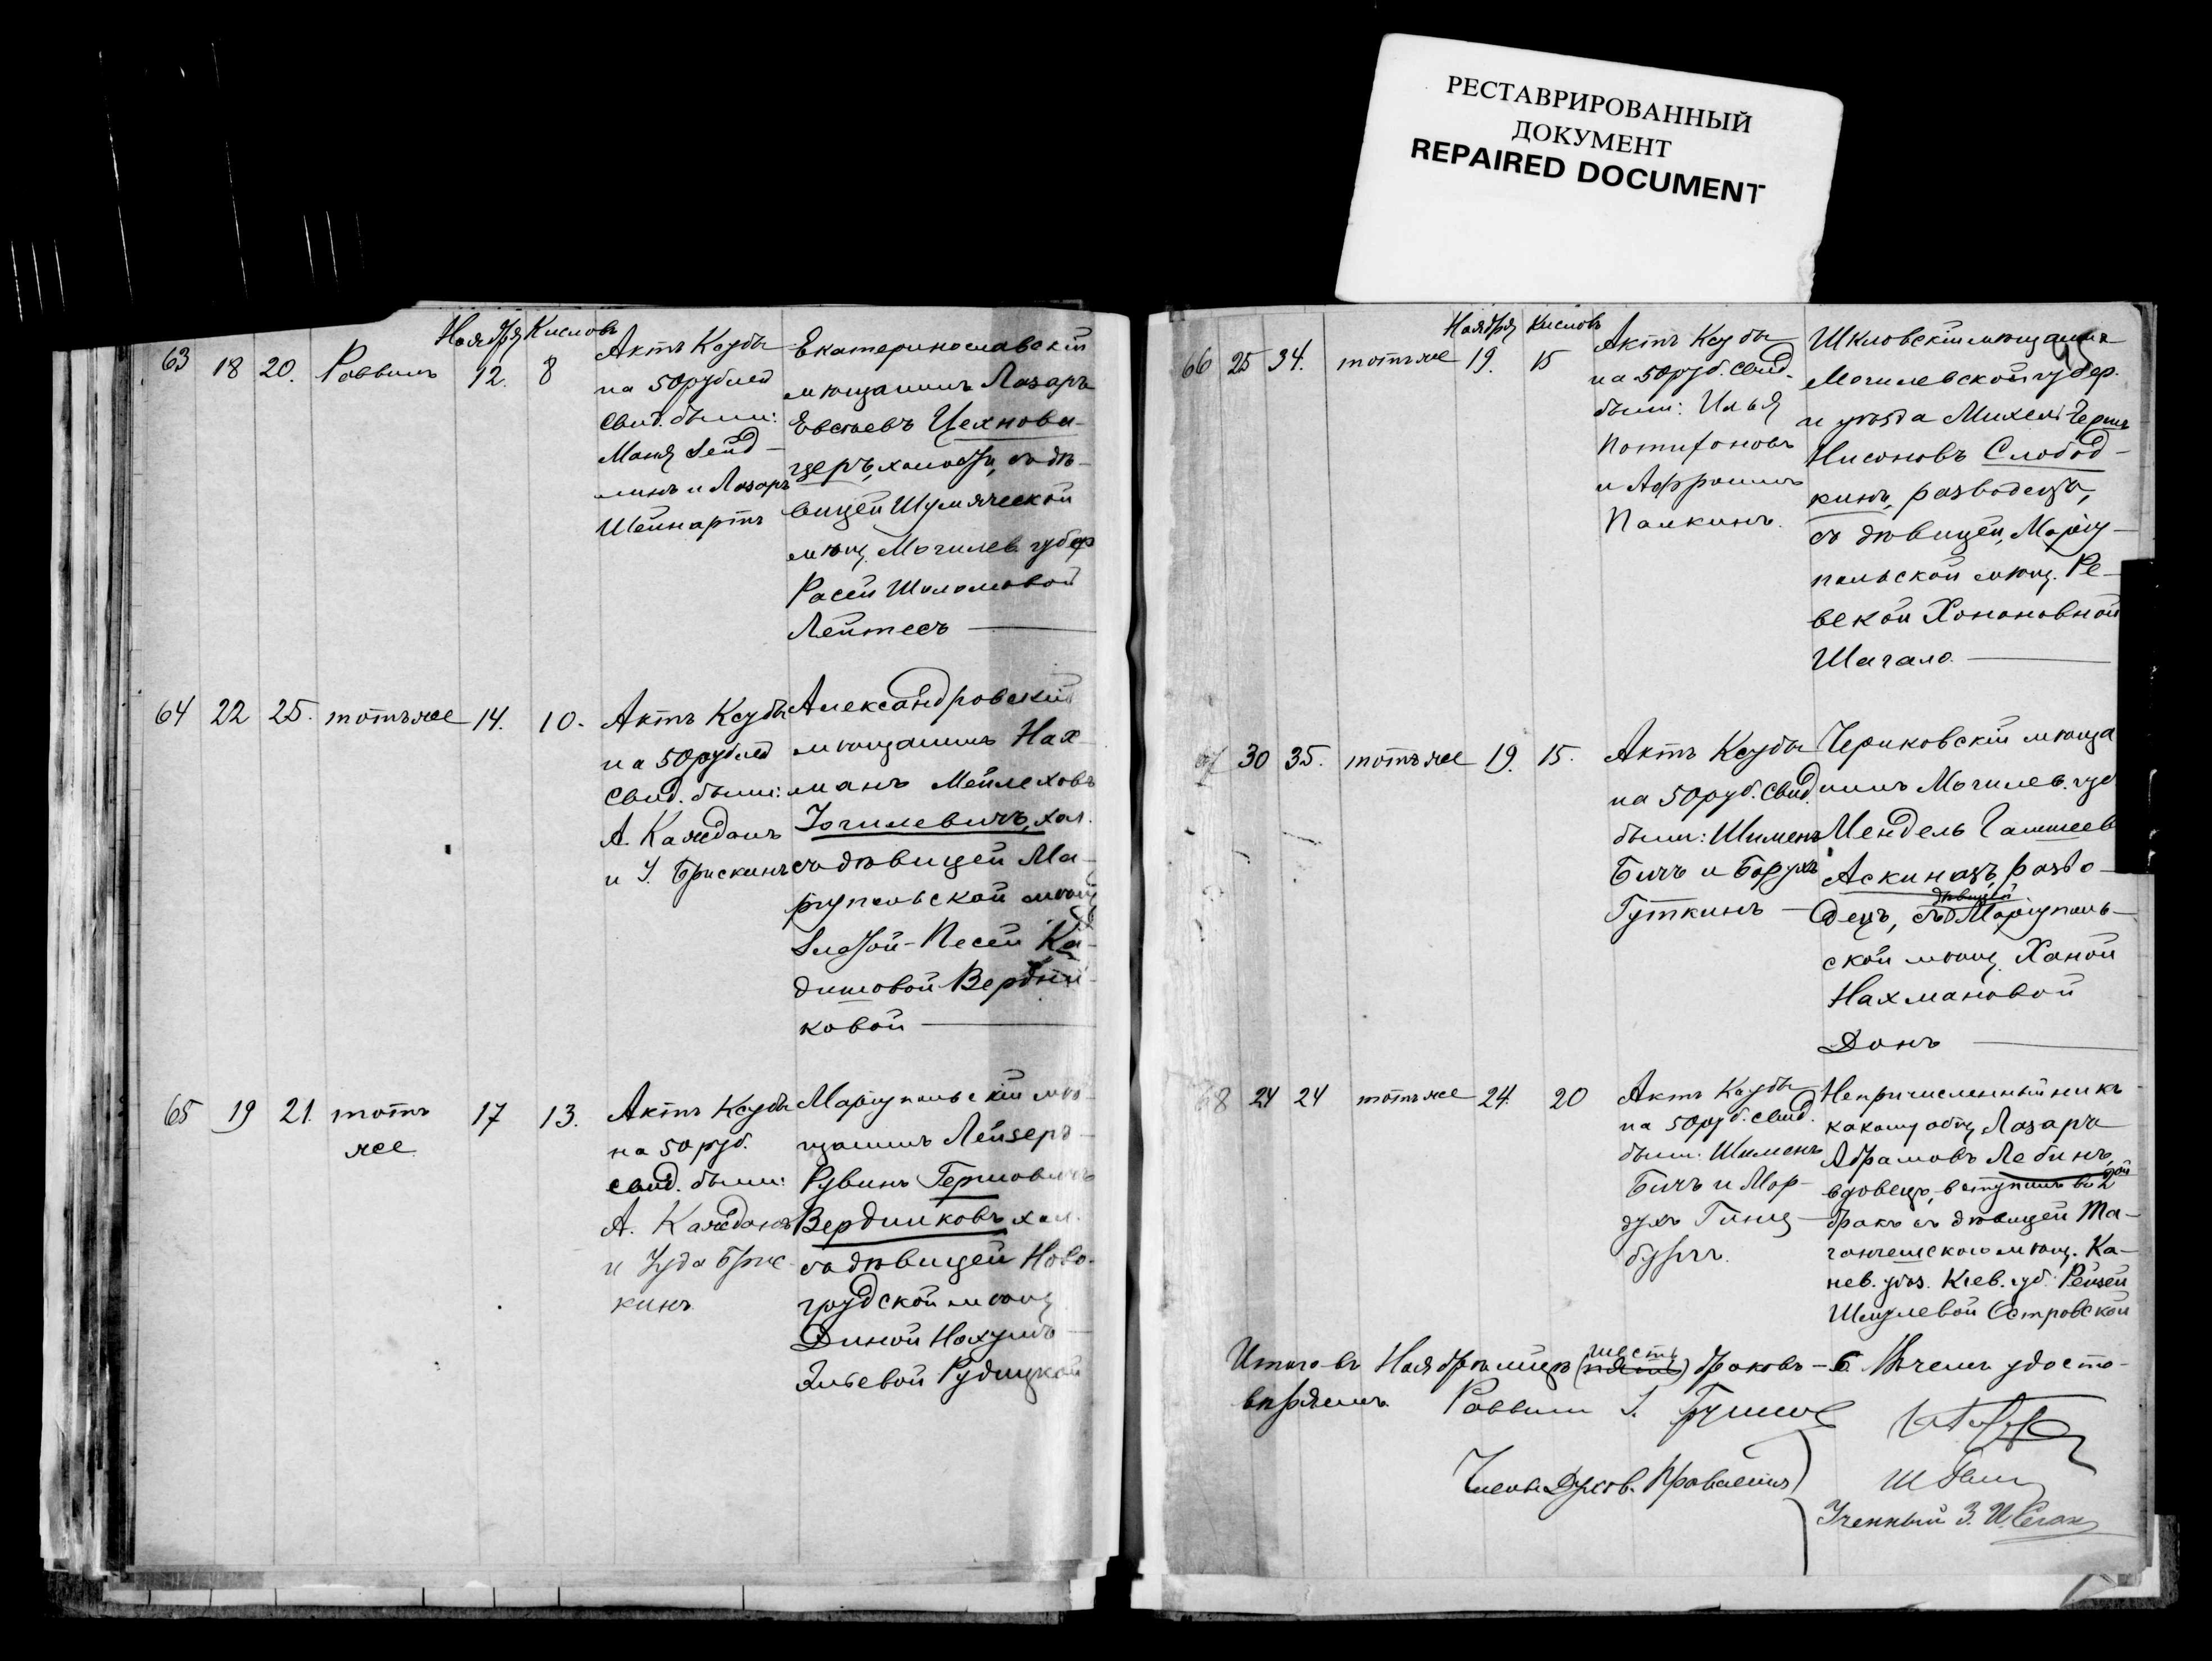 РЕСТАВРИРОВАННЫЙ
ДОКУМЕНТ
REPAIRED DOCUMENT
Ноября Кислов
63 18 20. Раввинъ 12. 8
Актъ Ксубы
на 50 рублей
Свид. были:
Шейнартъ
Екатеринославскій
мѣщанинъ Лазарь
Евсѣевъ Цехнови-
церъ, холостъ, съ дѣ-
вицей Шумячской
мѣщ. Могилев. губер.
Расей Шоломовой
Лейтесъ
64 22 25. тотъ же 14. 10.
Актъ Ксубы
на 50 рублей
Свид. были:
А. Каждонъ
и І. Брискинъ
Александровскій
мѣщанинъ Нах-
манъ Мейлеховъ
Іогилевичъ, хол.
съ дѣвицей Ма-
ріупольской мѣщ.
Златой-Песей Ка-
дишовой Вердни-
ковой
65 19 21. тотъ
же 17 13.
Актъ Ксубы
на 50 руб.
свид. были:
А. Каждонъ
и Іуда Брис-
кинъ
Маріупольскій мѣ-
щанинъ Лейзеръ-
Рувинъ Гершовичъ
Вердниковъ хол.
съ дѣвицей Ново-
грудской мѣщ.
Диной Нахумъ-
Эльевой Рудицкой
95
Ноября Кислов
66 25 34. тотъ же 19. 15
Актъ Ксубы
на 50 руб. свид.
были: Илья
и Афроимъ
Палкинъ.
Шкловскій мѣщанинъ
Могилевской губер.
и уѣзда Михель Герцъ
Нисоновъ Слобод-
кинъ, разводецъ,
съ дѣвицей, Маріу-
польской мѣщ. Ре-
векой Хононовной
Шагало.
67 30 35. тотъ же 19. 15.
Актъ Ксубы
на 50 руб. Свид.
были: Шименъ
Бичъ и Борухъ
Гуткинъ
Чериковскій мѣща
нинъ Могилев. губ
Мендель
Аскиназъ, разво-
дѣвицей
децъ, съ Маріуполь-
ской мѣщ. Ханой
Нахмановой
Донъ
68 24 24 тотъ же 24. 20
Актъ Ксубы
на 50 руб. свид.
были: Шименъ
Бичъ и Мор-
духъ Гинц-
бургъ.
Непричисленный ни къ
какому общ. Лазарь
Абрамовъ Лебинъ,
вдовецъ, вступилъ во 2ой
бракъ съ дѣвицей Та-
ганчешскою мѣщ. Ка-
нев. уѣз. Кіев. губ. Рейзей
Шмулевой Островской
шесть
Итого въ Ноябрѣ мѣсяцѣ (пять) браковъ - 6. Въ чемъ удосто-
вѣряемъ. Раввинъ
Члены Духов. Правленія
Ученный З. И.